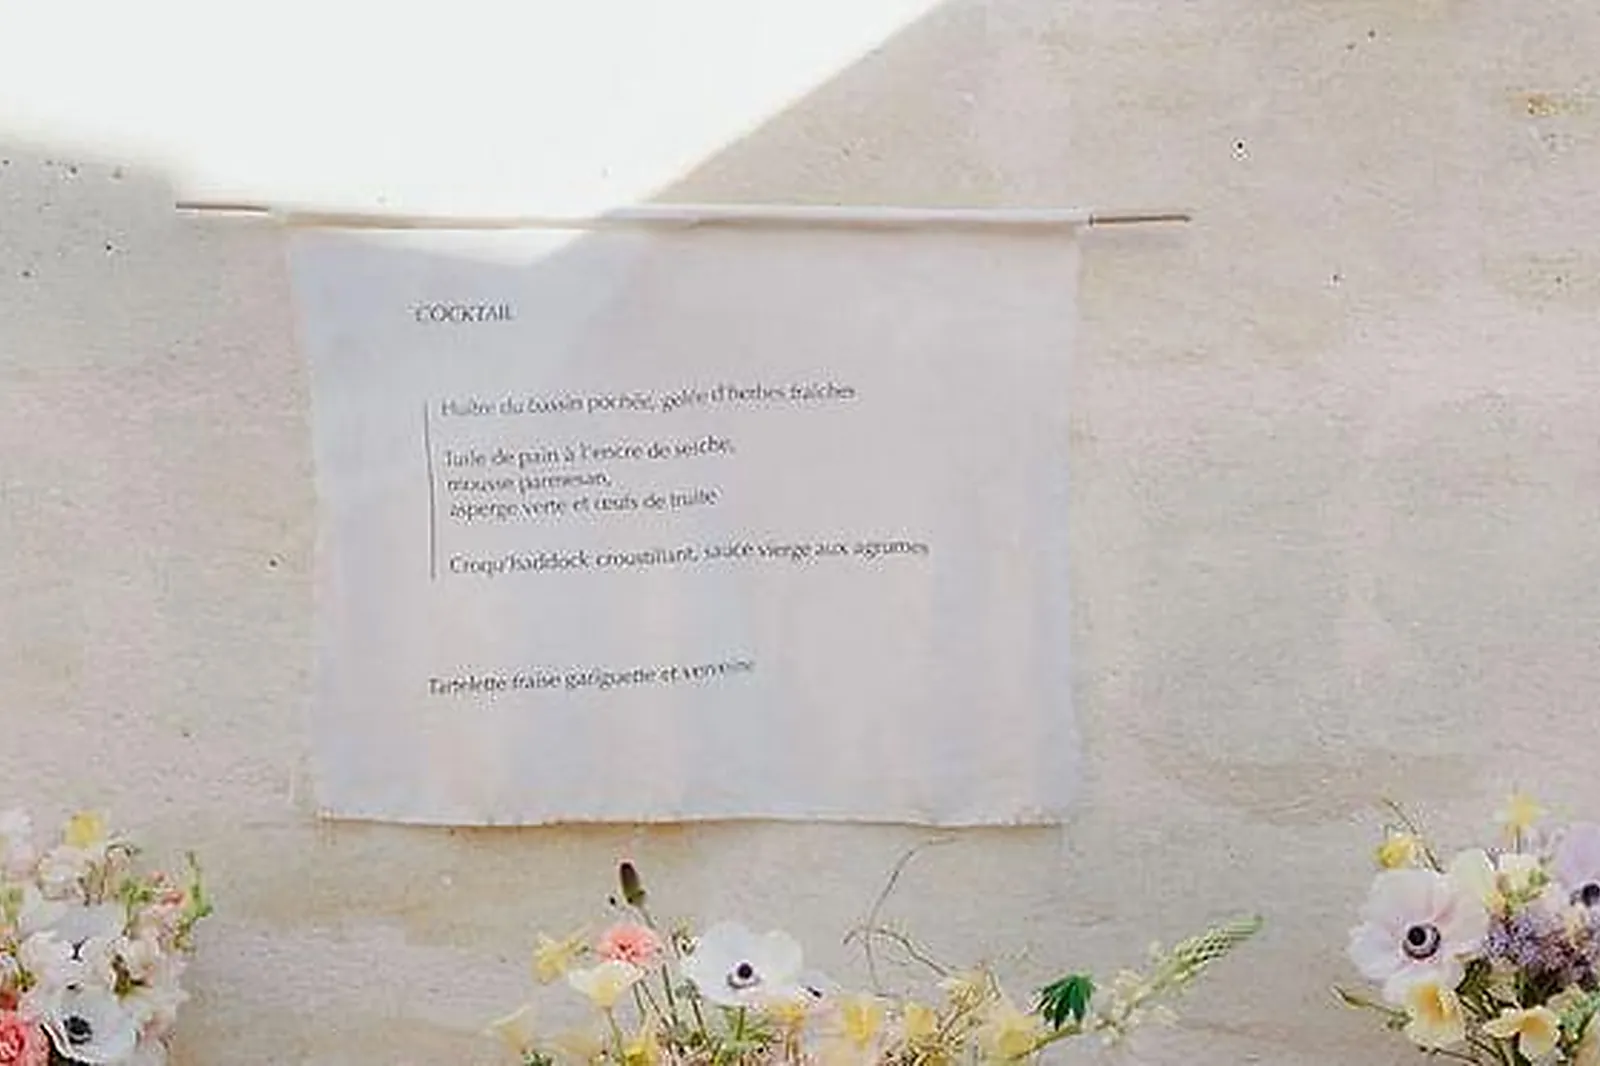 COCKTAIL
Huître du bassin pochée, gelée d'herbes fraîches
Tuile de pain à l'encre de seiche,
mousse parmesan,
asperge verte et œufs de truite
Croqu'haddock croustillant, sauce vierge aux agrumes
Tartelette fraise gariguette et verveine